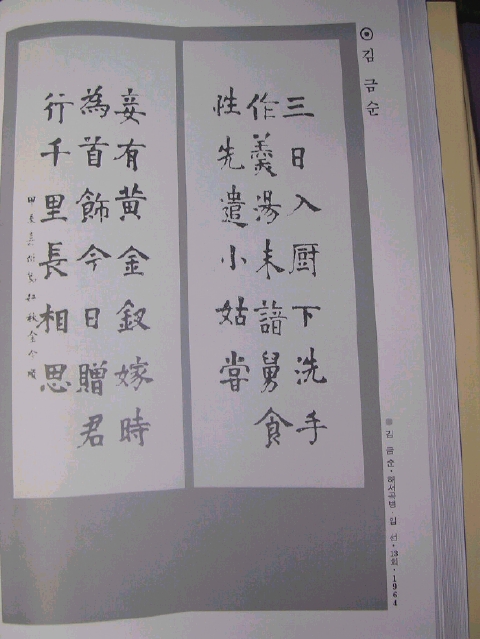 김 금 순
三日入厨下洗手
作羹湯未諳舅食
性先遣小姑嘗
妾有黃金釵嫁時
為首飾今日贈君
行千里長相思
김 금 순·해서곡병·입 선·13회·1964